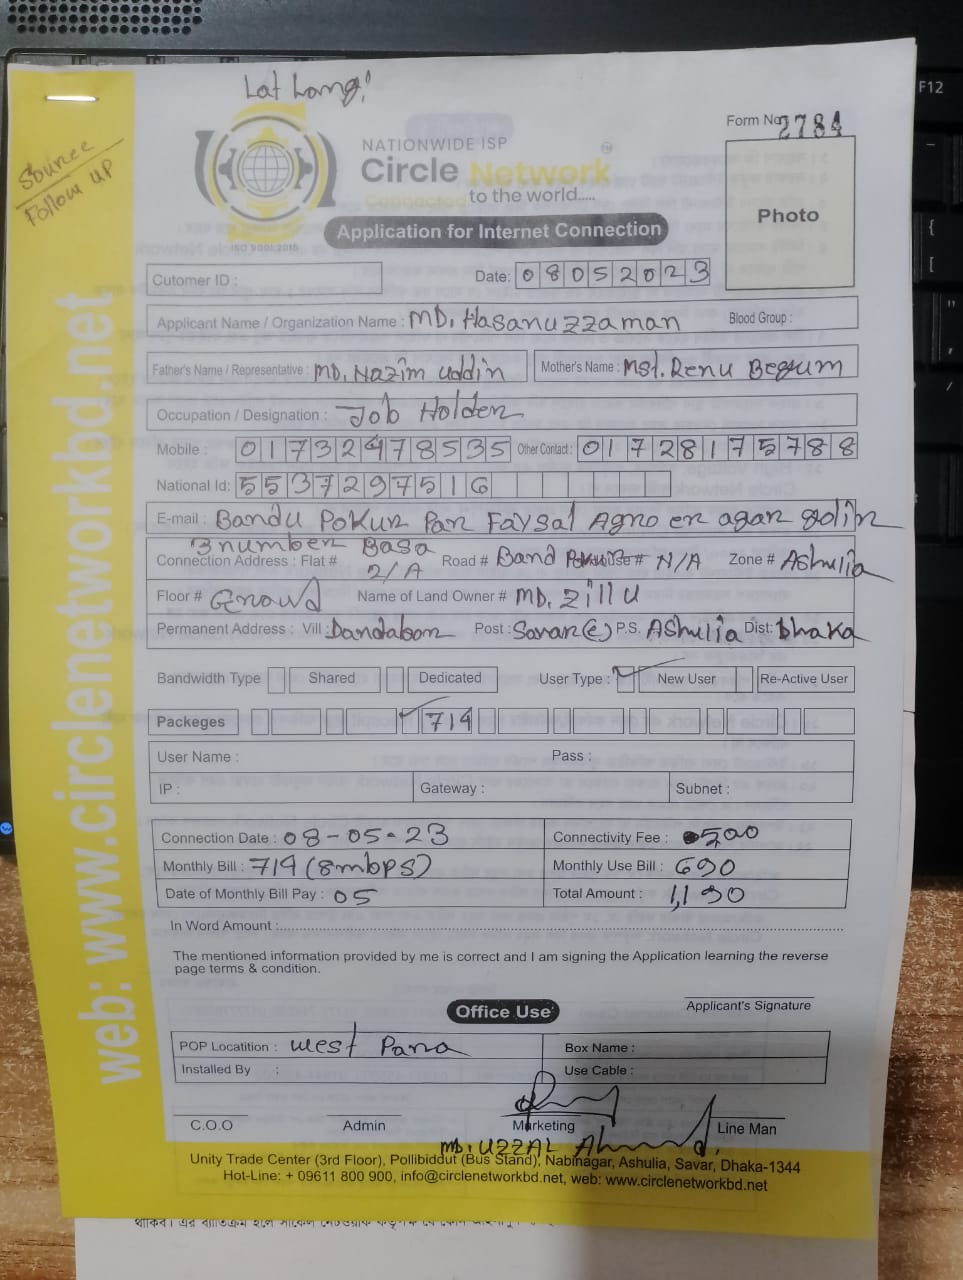 Lat Long!
Source
Follow up
Form No 2784
NATIONWIDE ISP
Circle Network
Connected to the world.....
ISO 9001:2015
Photo
Application for Internet Connection
Cutomer ID :
Date: 08052023
Applicant Name / Organization Name : MD. Hasanuzzaman Blood Group :
Father's Name / Representative : MD. Nazim uddin Mother's Name : Mst. Renu Begum
Occupation / Designation : Job Holder
Mobile : 01732478535 Other Contact : 01728175788
National Id: 5537297516
E-mail : Bandu Pokur Par Faysal Agro er agar golir
3 number Basa
Connection Address : Flat # 2/A Road # Band # N/A Zone # Ashulia
Floor # Ground Name of Land Owner # MD. Zillu
Permanent Address : Vill : Dandabor Post : Savar (C) P.S. Ashulia Dist: Dhaka
Bandwidth Type Shared Dedicated User Type : New User Re-Active User
Packeges 714
User Name : Pass :
IP : Gateway : Subnet :
Connection Date : 08-05-23 Connectivity Fee : 500
Monthly Bill : 714 (8mbps) Monthly Use Bill : 690
Date of Monthly Bill Pay : 05 Total Amount : 1,190
In Word Amount :
The mentioned information provided by me is correct and I am signing the Application learning the reverse
page terms & condition.
Applicant's Signature
Office Use
POP Locatition : West Para Box Name :
Installed By : Use Cable :
C.O.O Admin Marketing Line Man
MD. UZZAL Ahmed
Unity Trade Center (3rd Floor), Pollibiddut (Bus Stand), Nabinagar, Ashulia, Savar, Dhaka-1344
Hot-Line: + 09611 800 900, info@circlenetworkbd.net, web: www.circlenetworkbd.net
web: www.circlenetworkbd.net
F12